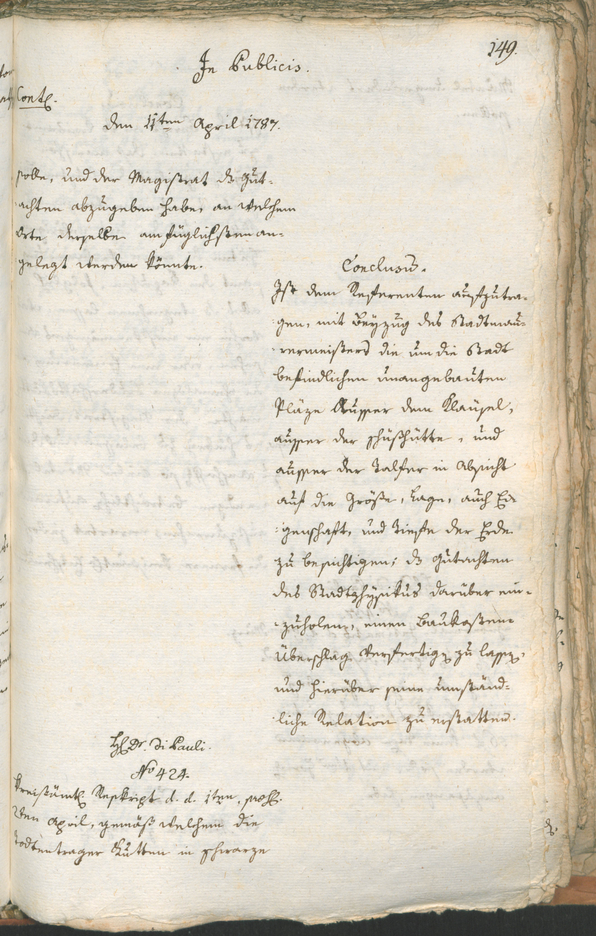 149.
In Publicis.
Cont.
den 11ten April 1787.
solle, und der Magistrat ds Gut-
achten abzugeben habe, an welchem
Orte derselbe am füglichsten an-
gelegt werden könnte.
Conclusum.
Ist dem Referenten aufzutra-
gen, mit Beyzug des Stadtmau-
rermeisters die um die Stadt
befindlichen unangebauten
Pläze ausser dem Klausel,
ausser der Schußhütte, und
ausser der Talfer in Absicht
auf die Größe, Lage, auch Ei-
genschaft, und Tieffe der Erde
zu besichtigen; ds Gutachten
des Stadtphysikus darüber ein-
zuholen, einen Baukosten-
Überschlag verfertigen zu lassen,
und hierüber seine umständ-
liche Relation zu erstatten.
H. Dr. Di Pauli.
No 424.
Kreisämtl. Reskript d. d. 1ten, praes.
ten April, gemäß welchem die
Todtentrager Kutten in schwarze